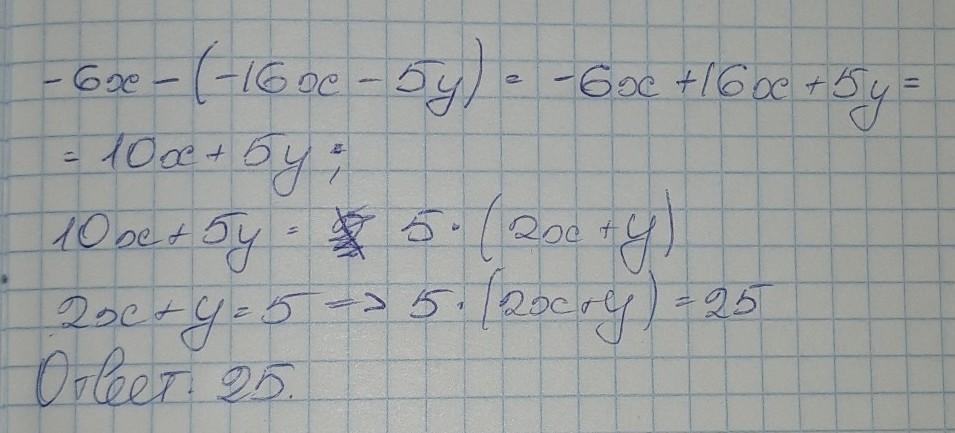 -6x - (-16x - 5y) = -6x + 16x + 5y =
= 10x + 5y;
10x + 5y = 5 · (2x + y)
2x + y = 5 => 5 · (2x + y) = 25
Ответ: 25.